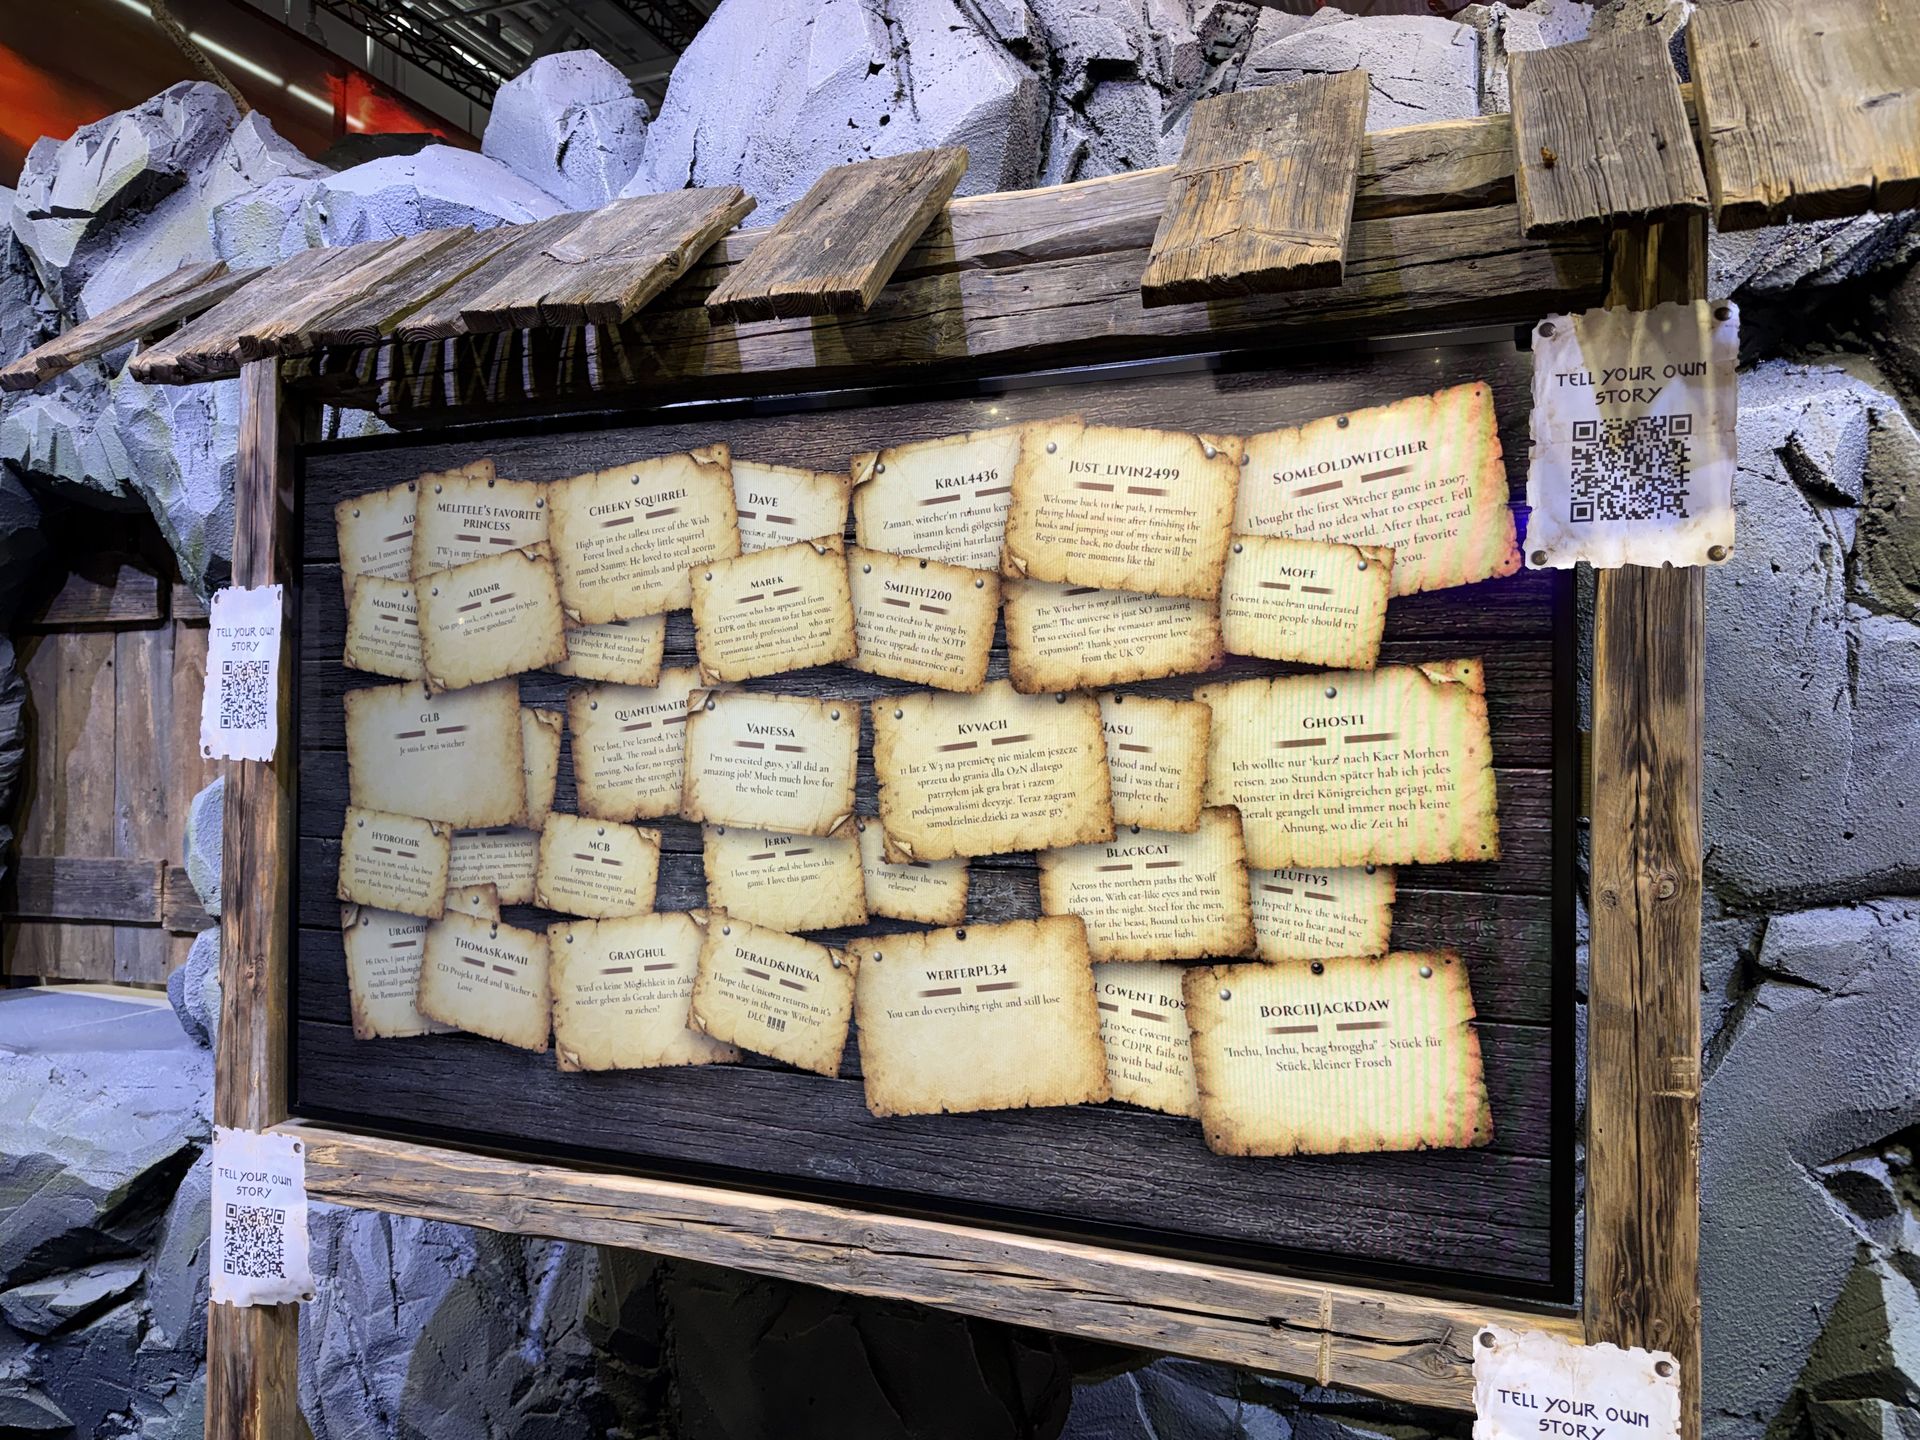 TELL YOUR OWN
STORY
TELL YOUR OWN
STORY
TELL YOUR OWN
STORY
TELL YOUR OWN
STORY
AD
What I most
MELITELE'S FAVORITE
PRINCESS
TW3 is my
time,
CHEEKY SQUIRREL
High up in the tallest tree of the Wish
Forest lived a cheeky little squirrel
named Sammy. He loved to steal acorns
from the other animals and play tricks
on them.
DAVE
all your
KRAL4436
Zaman, witcher'in ruhunu
insanın kendi gölgesin
hükmedemediğini hatırlatır
öğretir: insan,
JUST_LIVIN2499
Welcome back to the path, I remember
playing blood and wine after finishing the
books and jumping out of my chair when
Regis came back, no doubt there will be
more moments like thi
SOMEOLDWITCHER
I bought the first Witcher game in 2007.
had no idea what to expect. Fell
the world. After that, read
my favorite
you.
MADWELSH
By far my favou
developers, replay your
every year, roll on the
AIDANR
You guys rock, can't wait to (re)play
the new goodness!!
CD Projekt Red stand auf
gamescom. Best day ever!
MAREK
Everyone who has appeared from
CDPR on the stream so far has come
across as truly professional who are
passionate about what they do and
SMITHY1200
I am so excited to be going by
back on the path in the SOTP
a free upgrade to the game
makes this masterpiece of a
The Witcher is my all time fav
game!! The universe is just SO amazing
I'm so excited for the remaster and new
expansion!! Thank you everyone love
from the UK ♡
MOFF
Gwent is such an underrated
game, more people should try
it :>
GLB
Je suis le vrai witcher
QUANTUMATR
I've lost, I've learned, I've b
I walk. The road is dark,
moving. No fear, no regre
me became the strength I
my path. Alo
VANESSA
I'm so excited guys, y'all did an
amazing job! Much much love for
the whole team!
KVVACH
11 lat z W3 na premierę nie mialem jeszcze
sprzetu do grania dla OzN dlatego
patrzyłem jak gra brat i razem
podejmowaliśmi decyzje. Teraz zagram
samodzielnie.dzieki za wasze gry
ASU
blood and wine
sad i was that i
complete the
GHOSTI
Ich wollte nur 'kurz' nach Kaer Morhen
reisen. 200 Stunden später hab ich jedes
Monster in drei Königreichen gejagt, mit
Geralt geangelt und immer noch keine
Ahnung, wo die Zeit hi
HYDROLOIK
Witcher 3 is not only the best
game ever. It's the best thing
ever. Each new playthrough
into the Witcher series ever
got it on PC in 2012. It helped
through tough times, immersing
in Geralt's story. Thank you for
MCB
I appreciate your
commitment to equity and
inclusion. I can see it in the
JERKY
I love my wife and she loves this
game. I love this game.
happy about the new
releases!
BLACKCAT
Across the northern paths the Wolf
rides on, With cat-like eyes and twin
blades in the night. Steel for the men,
for the beast, Bound to his Ciri
and his love's true light.
FLUFFY5
hyped! love the witcher
want wait to hear and see
of it! all the best
URAGIRI
Hi Devs, I just plati
week and though
final(final) goodb
the Remastered
THOMASKAWAII
CD Projekt Red and Witcher is
Love
GRAYGHUL
Wird es keine Möglichkeit in Zuku
wieder geben als Geralt durch die
zu ziehen!
DERALD&NIXKA
I hope the Unicorn returns in it's
own way in the new Witcher
DLC !!!!
WERFERPL34
You can do everything right and still lose
L GWENT BOS
to see Gwent get
DLC. CDPR fails to
us with bad side
kudos.
BORCHJACKDAW
"Inchu, Inchu, beag broggha" - Stück für
Stück, kleiner Frosch